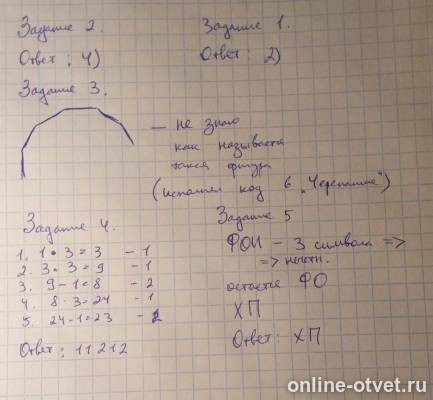 Задание 2.
Ответ: 4)
Задание 1.
Ответ: 2)
Задание 3.
— не знаю
как называется
такая фигура
(испытал код в "Черепашке")
Задание 4.
1. 1 · 3 = 3 – 1
2. 3 · 3 = 9 – 1
3. 9 – 1 = 8 – 2
4. 8 · 3 = 24 – 1
5. 24 – 1 = 23 – 2
Ответ: 11212
Задание 5
ФОИ – 3 символа =>
=> нечётн.
остаётся ФО
ХП
Ответ: ХП
online-otvet.ru